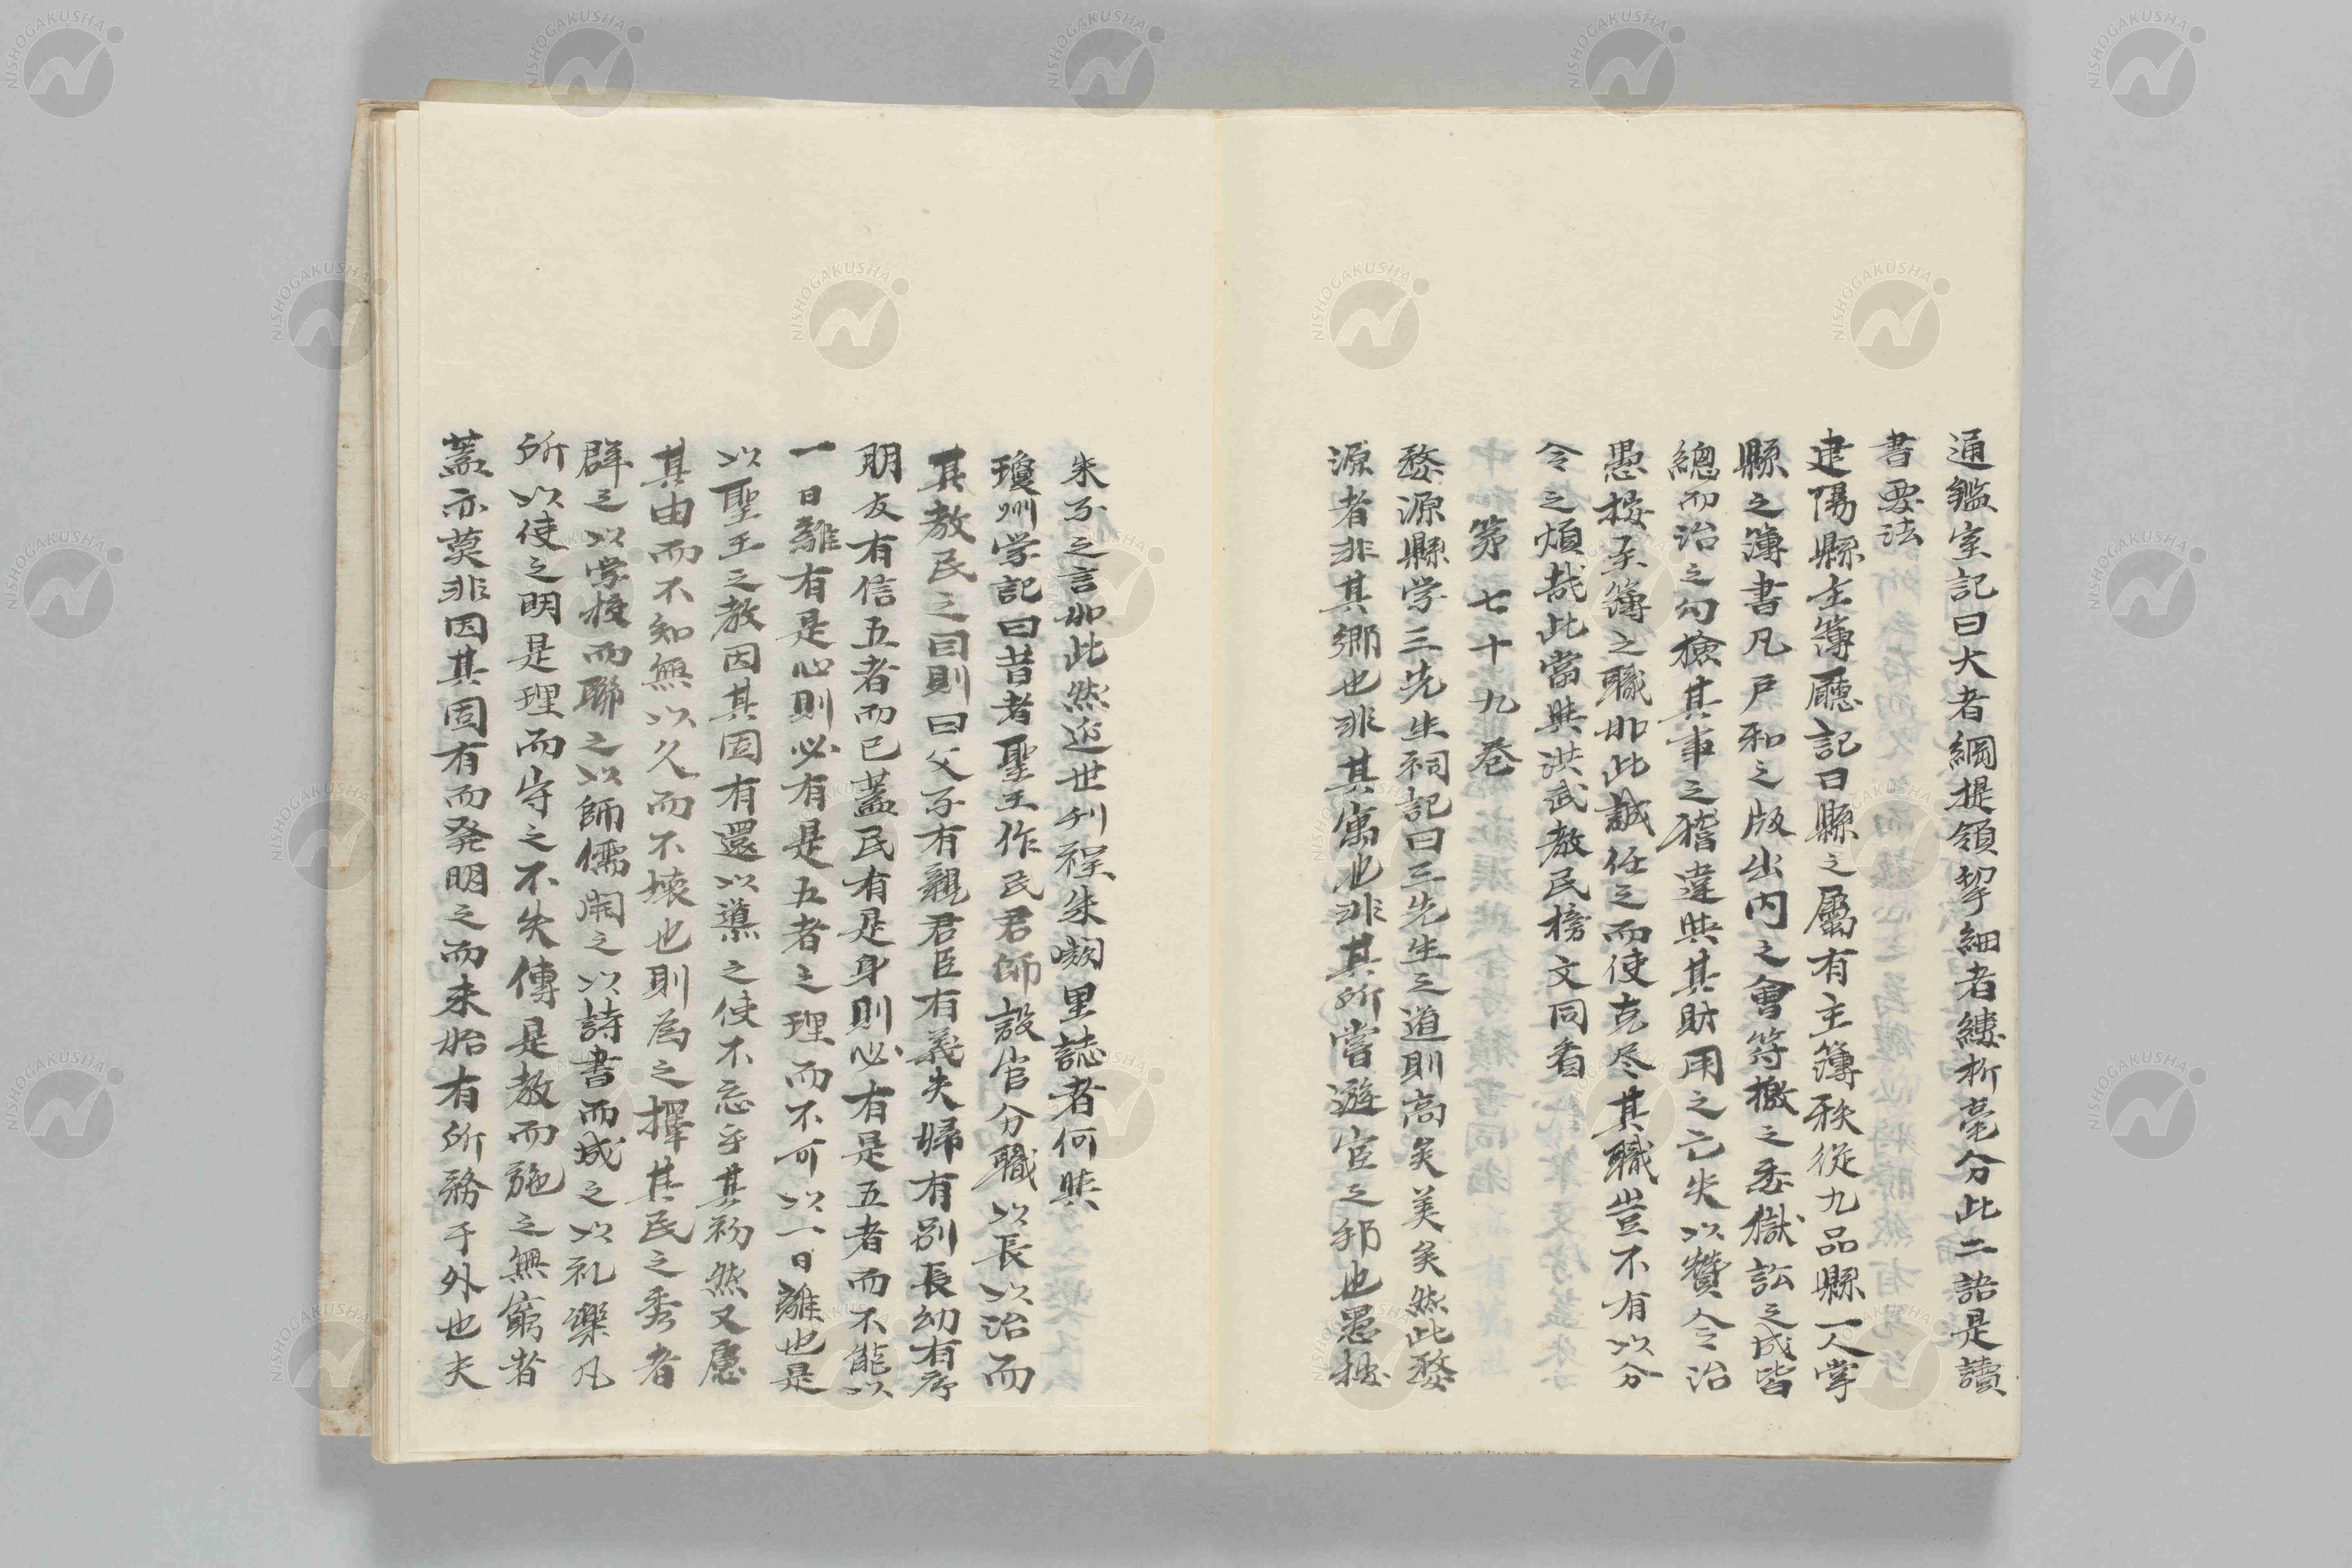 通鑑室記曰大者綱提領挈細者縷析毫分此二語是讀
書要法
建陽縣主簿廳記曰縣之屬有主簿秩從九品縣一人掌
縣之簿書凡戸租之版出内之會符檄之委獄訟之成皆
總而治之勾檢其事之稽違與其財用之亡失以贊令治
愚按主簿之職如此誠任之而使克尽其職豈不有以分
令之煩哉此當與洪武教民榜文同看
第七十九卷
婺源縣学三先生祠記曰三先生之道則高矣美矣然此婺
源者非其鄉也非其寓也非其所嘗遊宦之邦也愚按
朱子之言如此然近世刋程朱闕里誌者何與
瓊州学記曰昔者聖王作民君師設官分職以長以治而
其教民之目則曰父子有親君臣有義夫婦有別長幼有序
朋友有信五者而已蓋民有是身則必有是五者而不能以
一日離有是心則必有是五者之理而不可以一日離也是
以聖王之教因其固有還以導之使不忘乎其初然又慮
其由而不知無以久而不壊也則為之擇其民之秀者
群之以学校而聯之以師儒開之以詩書而成之以礼樂凡
所以使之明是理而守之不失傳是教而施之無窮者
蓋亦莫非因其固有而発明之而未始有所務于外也夫
NISHOGAKUSHA